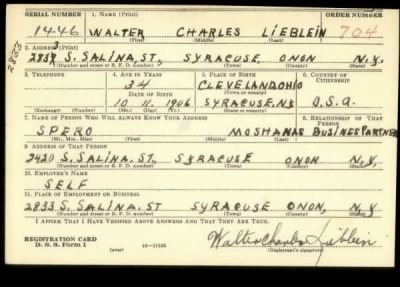 SERIAL NUMBER 1. NAME (Print) ORDER NUMBER
1446 WALTER CHARLES LIEBLEIN 704
(First) (Middle) (Last)
2. ADDRESS (Print)
2833
S. SALINA, ST, SYRACUSE ONON N.Y.
(Number and street or R. F. D. number) (Town) (County) (State)
3. TELEPHONE 4. AGE IN YEARS 5. PLACE OF BIRTH 6. COUNTRY OF CITIZENSHIP
34 CLEVELAND OHIO
DATE OF BIRTH (Town or county)
10 11 1906 SYRACUSE, NY U.S.A.
(Mo.) (Day) (Yr.) (State or country)
7. NAME OF PERSON WHO WILL ALWAYS KNOW YOUR ADDRESS 8. RELATIONSHIP OF THAT PERSON
SPERO MOSHANAS BUSINES PARTNER
(Mr., Mrs., Miss) (First) (Middle) (Last)
9. ADDRESS OF THAT PERSON
2420 S. SALINA, ST, SYRACUSE ONON N.Y.
(Number and street or R. F. D. number) (Town) (County) (State)
10. EMPLOYER'S NAME
SELF
11. PLACE OF EMPLOYMENT OR BUSINESS
2833 S. SALINA. ST SYRACUSE ONON, N.Y
(Number and street or R. F. D. number) (Town) (County) (State)
I AFFIRM THAT I HAVE VERIFIED ABOVE ANSWERS AND THAT THEY ARE TRUE.
REGISTRATION CARD
D. S. S. Form 1 (over) 16—17105 Walter Charles Lieblein
(Registrant's signature)